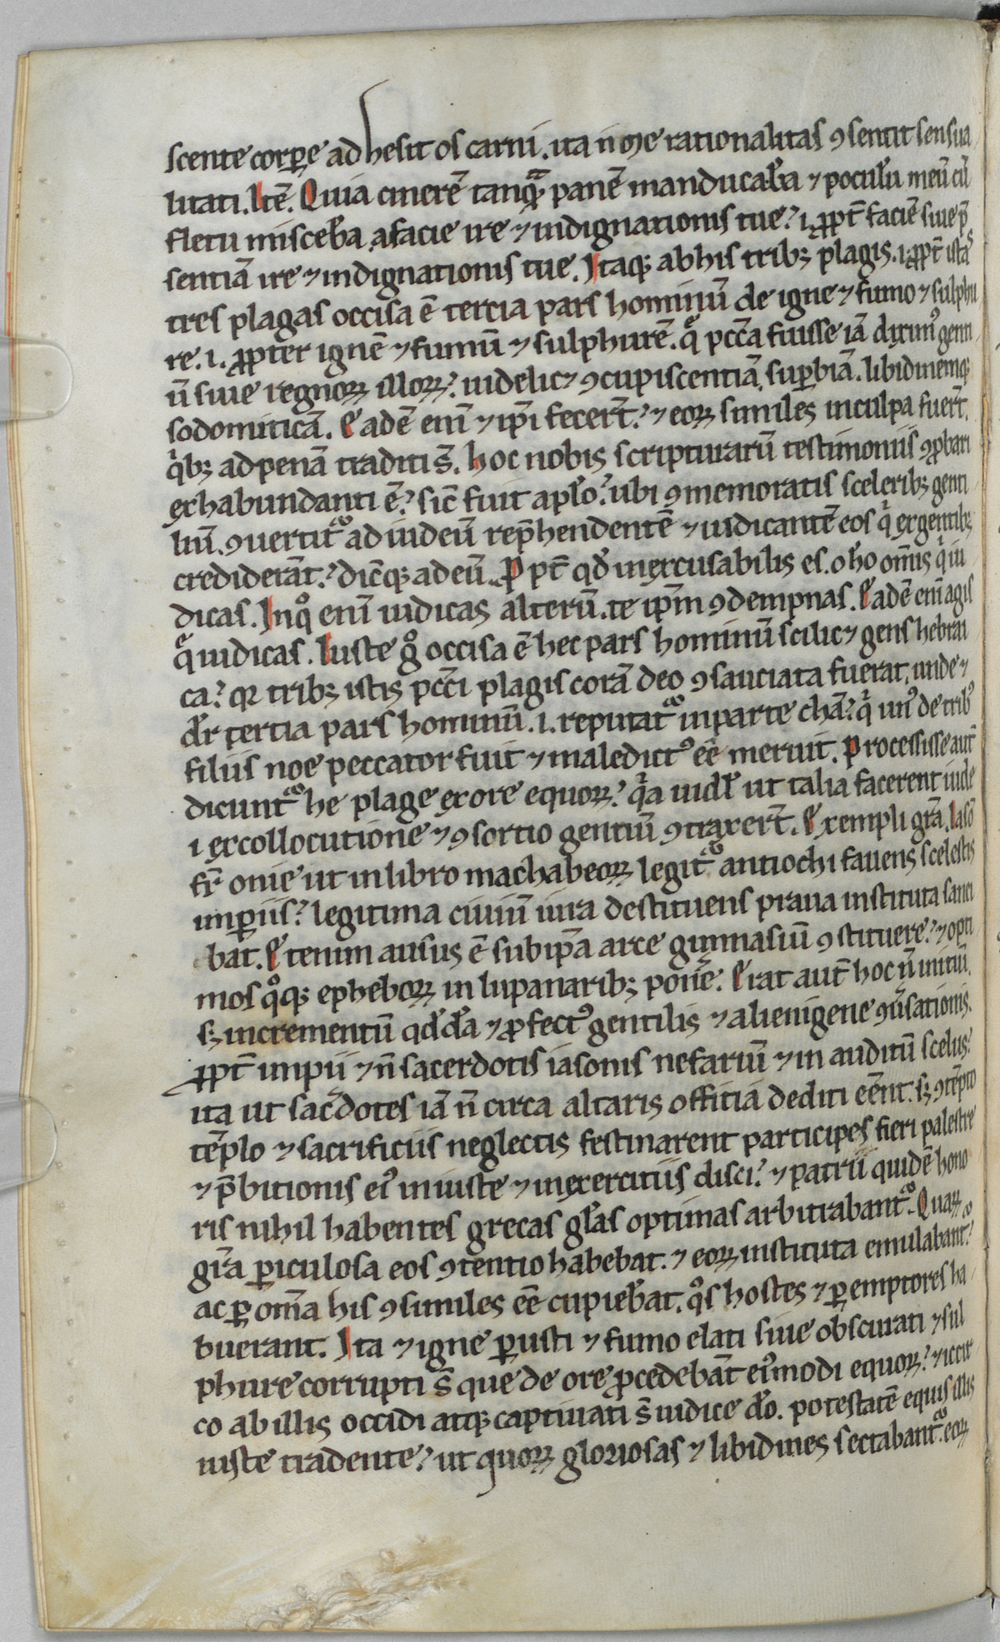 scente corpe adhesit os carni. ita in me rationalitas ꝯsentit sensua
litati. Itē. Quia cinerē tanqͣ panē manducaba ⁊ poculū meū cū
fletu misceba a facie ire ⁊ indignationis tue? i. ꝓpt̄ faciē siue p̄
sentiā ire ⁊ indignationis tue. Itaqꝫ ab his tribꝫ plagis. i. ꝓpt̄ istas
tres plagas occisa ē tercia pars hominū de igne ⁊ fumo ⁊ sulphu
re. i. ꝓpter ignē ⁊ fumū ⁊ sulphurē. qͣ pccā fuisse iā diximꝰ genti
ū siue regnoꝝ illoꝝ? uidelic⁊ ꝯcupiscentiā, supbiā. libidinemqꝫ
sodomiticā. Eadē eni ⁊ ipi fecert̄? ⁊ eoꝝ similes in culpa fuert̄.
qͥbꝫ ad penā traditi s̄. hoc nobis scripturarū testimoniis ꝯꝓbari
ex habundanti ē? sic̄ fuit apl̄o? ubi ꝯmemoratis sceleribꝫ genti
liū. ꝯuertit᷑ ad iudeū rep̄hendentē ⁊ iudicantē eos qͥ ex gentibꝫ
crediderāt? dicēqꝫ ad eū. Ꝓpt̄ qd̄ inexcusabilis es. o ho om̄is qͥ iu
dicas. In qͦ enī iudicas alterū. te ipm̄ ꝯdempnas. Eadē eni agis
qͣ iudicas. Iuste gͦ occisa ē hec pars hominū scilic⁊ gens hebrai
ca? qꝛ tribꝫ istis pcc̄i plagis corā deo ꝯsauciata fuerat, unde ⁊
dr̄ tertia pars hominū. i. reputat᷑ in parte chā? qͥ unꝰ de tribꝰ
filiis noe peccator fuit ⁊ maledictꝰ eē meruit. Processisse aut̄
dicunt᷑ he plage ex ore equoꝝ? qͥa uidl̄ ut talia facerent iude
i ex collocutione ⁊ ꝯsortio gentiū ꝯtraxert̄. Exempli grā. Iasō
fr̄ onie ut in libro machabeoꝝ legit᷑ antiochi fauens scelestis
impiis? legitima ciuiū iura destituens praua instituta sanci
bat. Etenim ausus ē sub ipa arce gimnasiū ꝯstituere? ⁊ opti
mos qͦqꝫ epheboꝝ in lupanaribꝫ pone. Erat aut̄ hoc n̄ initiū.
sꝫ incrementū qd̄da ⁊ ꝓfectꝰ gentilis ⁊ alienigene ꝯuersationis.
ꝓpt̄ impii ⁊ n̄ sacerdotis iasonis nefariū ⁊ inauditū scelus?
ita ut sacdotes iā n̄ circa altaris offitiā dediti eēnt. sꝫ ꝯtēpto
tēplo ⁊ sacrificiis neglectis festinarent participes fieri palestre
⁊ p̄bitionis eiꝰ iniuste ⁊ in exercitiis disci? ⁊ patrii quidē hono
ris nihil habentes grecas glas optimas arbitrabant᷑. Quaꝝ
gra piculosa eos ꝯtentio habebat. ⁊ eoꝝ instituta emulabant᷑?
ac p om̄a his ꝯsimiles eē cupiebat. qͦs hostes ⁊ pemptores ha
buerant. Ita ⁊ igne pusti ⁊ fumo elati siue obscurati ⁊ sul
phure corrupti s̄ que de ore ꝓcedebāt eiꝰmodi equoꝝ? ⁊ iccir
co ab illis occidi atqꝫ captiuati s̄ iudice do. potestatē equis illis
iuste tradente? ut quoꝝ gloriosas ⁊ libidines sectabant᷑. eoꝝ